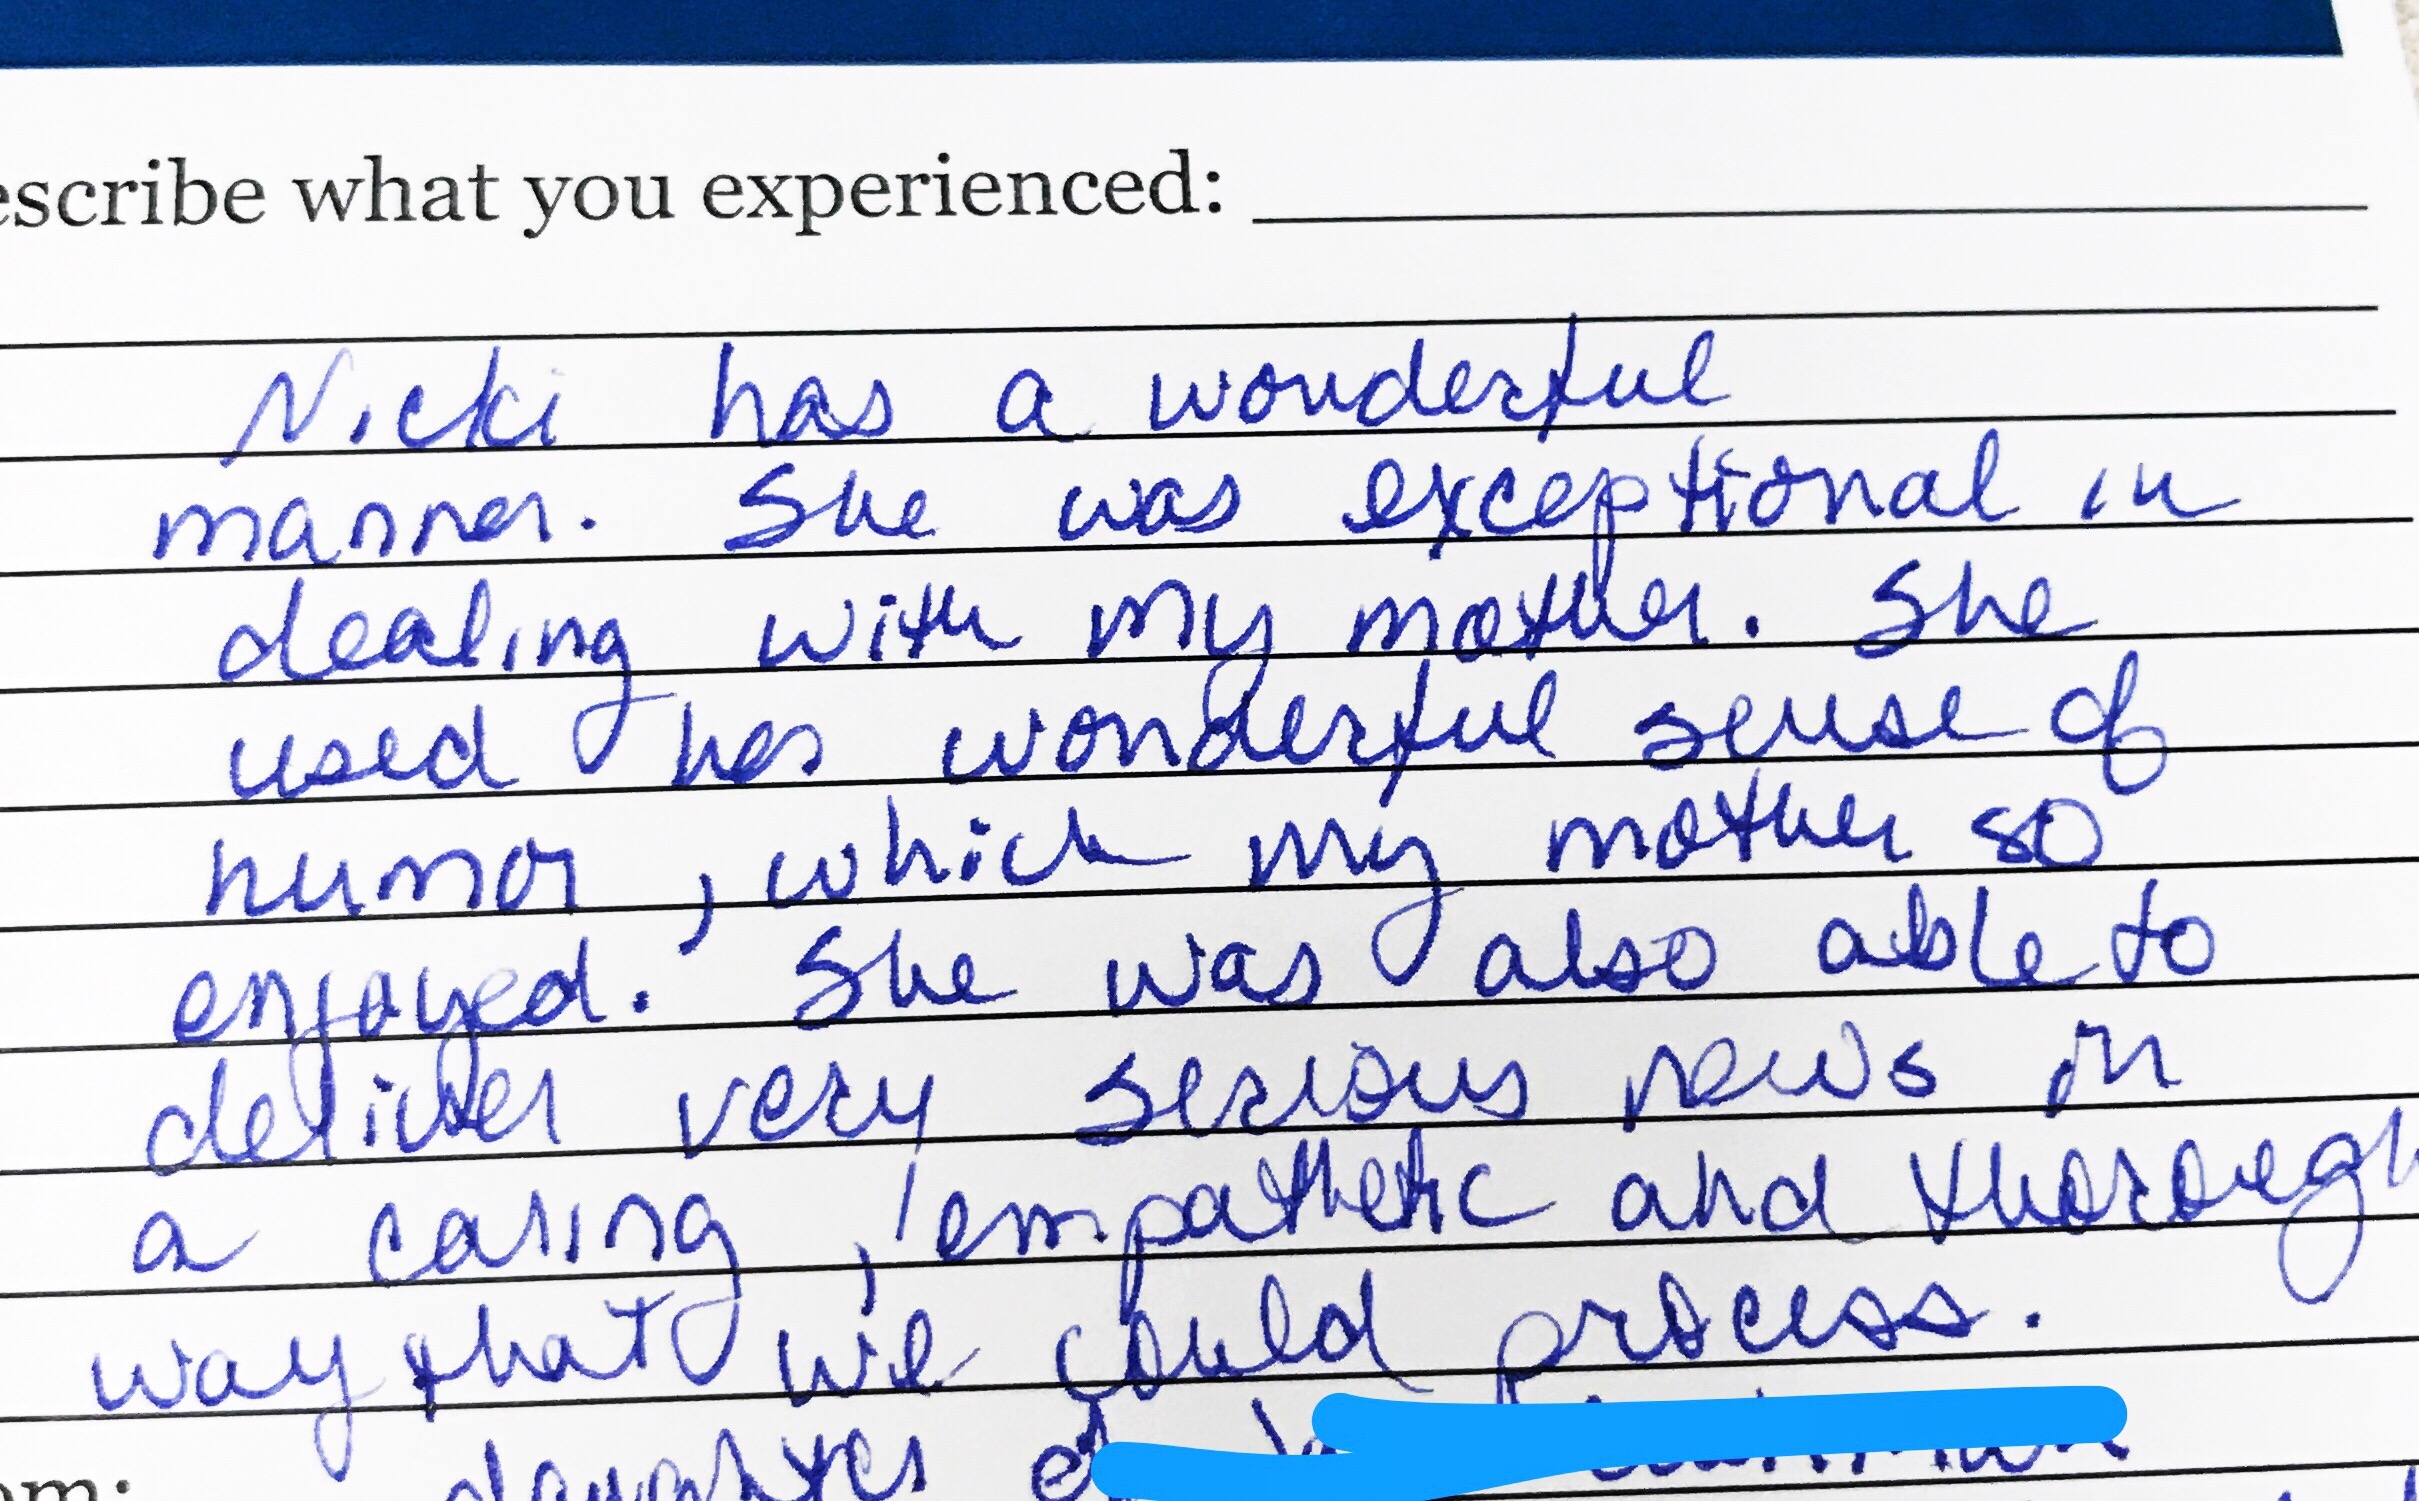 escribe what you experienced:
Nicki has a wonderful
manner. She was exceptional in
dealing with my mother. She
used her wonderful sense of
humor, which my mother so
enjoyed. She was also able to
deliver very serious news in
a caring, empathetic and thorough
way that we could process.
om: daughter of